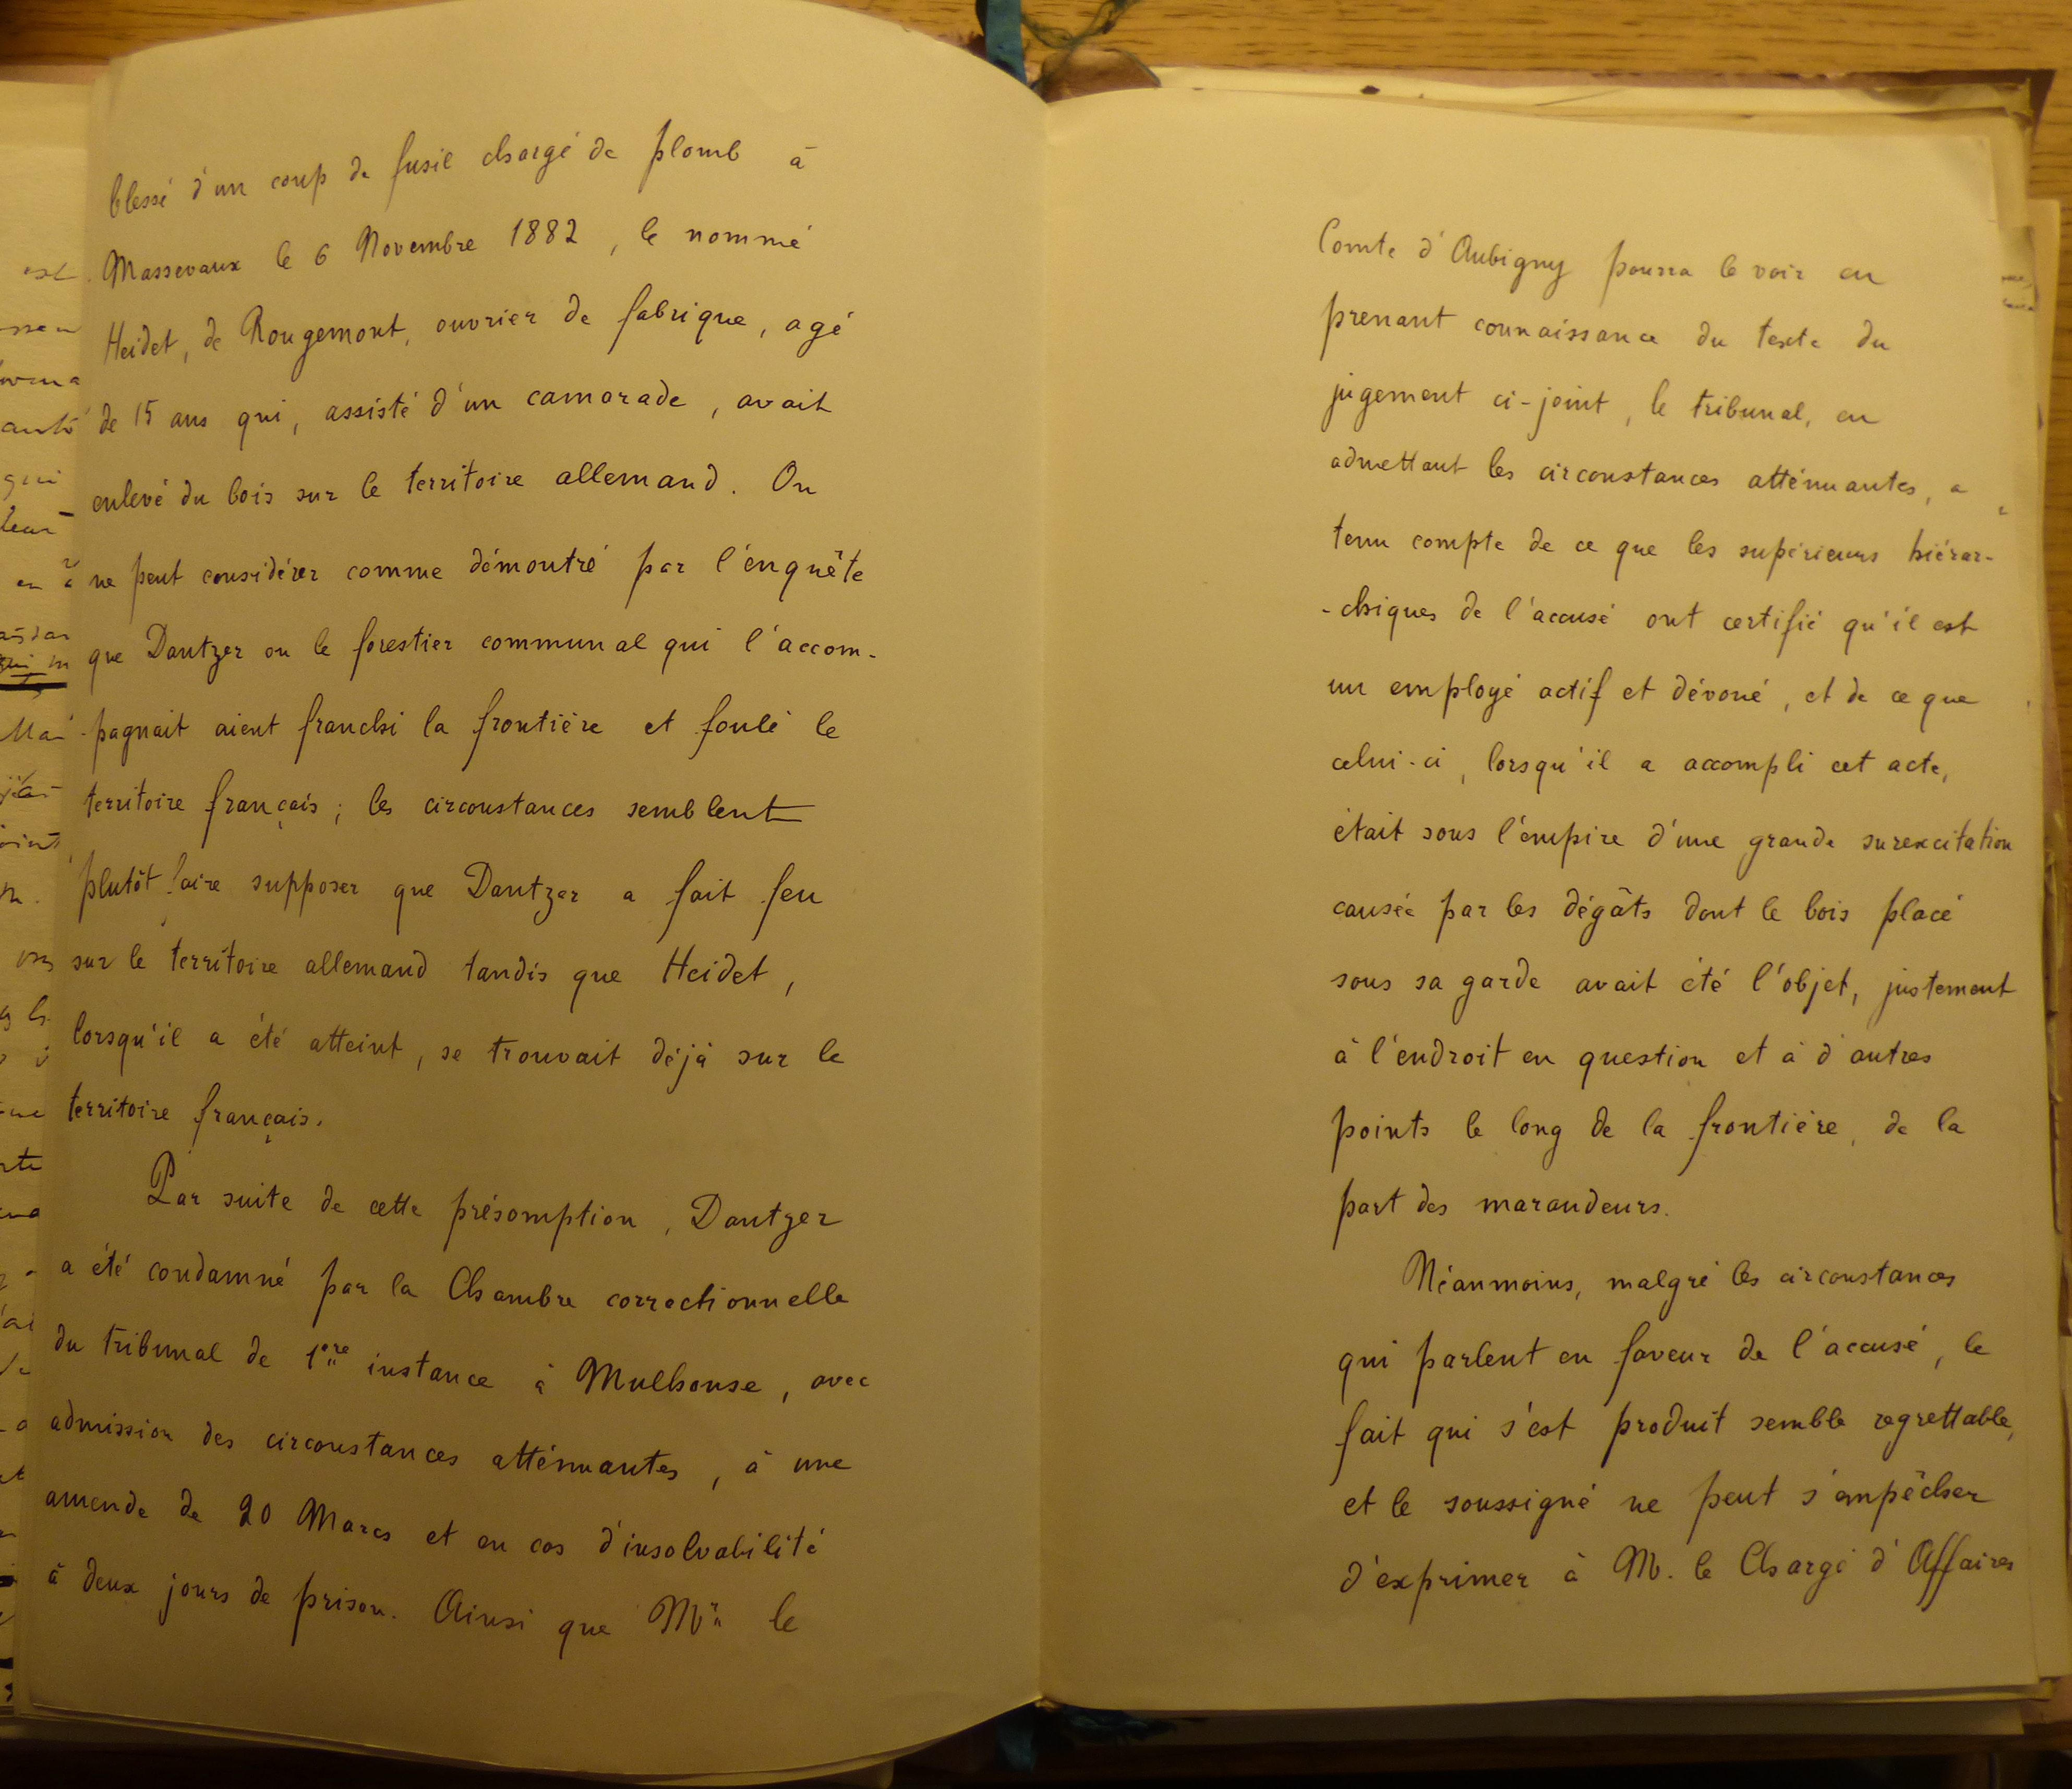 blessé d'un coup de fusil chargé de plomb à
Massevaux le 6 Novembre 1882, le nommé
Heidet, de Rougemont, ouvrier de fabrique, agé
de 15 ans qui, assisté d'un camarade, avait
enlevé du bois sur le territoire allemand. On
ne peut considérer comme démontré par l'énquête
que Dantzer ou le forestier communal qui l'accom-
-pagnait aient franchi la frontière et foulé le
territoire français; les circonstances semblent
plutôt faire supposer que Dantzer a fait feu
sur le territoire allemand tandis que Heidet,
lorsqu'il a été atteint, se trouvait déjà sur le
territoire français.
Par suite de cette présomption, Dantzer
a été condamné par la Chambre correctionnelle
du tribunal de 1ère instance à Mulhouse, avec
admission des circonstances atténuantes, à une
amende de 20 Marcs et en cas d'insolvabilité
à deux jours de prison. Ainsi que Mr le
Comte d'Aubigny pourra le voir en
prenant connaissance du texte du
jugement ci-joint, le tribunal, en
admettant les circonstances atténuantes, a
tenu compte de ce que les supérieurs hiérar-
-chiques de l'accusé ont certifié qu'il est
un employé actif et dévoué, et de ce que
celui-ci, lorsqu'il a accompli cet acte,
était sous l'empire d'une grande surexcitation
causée par les dégâts dont le bois placé
sous sa garde avait été l'objet, justement
à l'endroit en question et à d'autres
points le long de la frontière, de la
part des maraudeurs.
Néanmoins, malgré les circonstances
qui parlent en faveur de l'accusé, le
fait qui s'est produit semble regrettable,
et le soussigné ne peut s'empêcher
d'exprimer à M. le Chargé d'Affaires